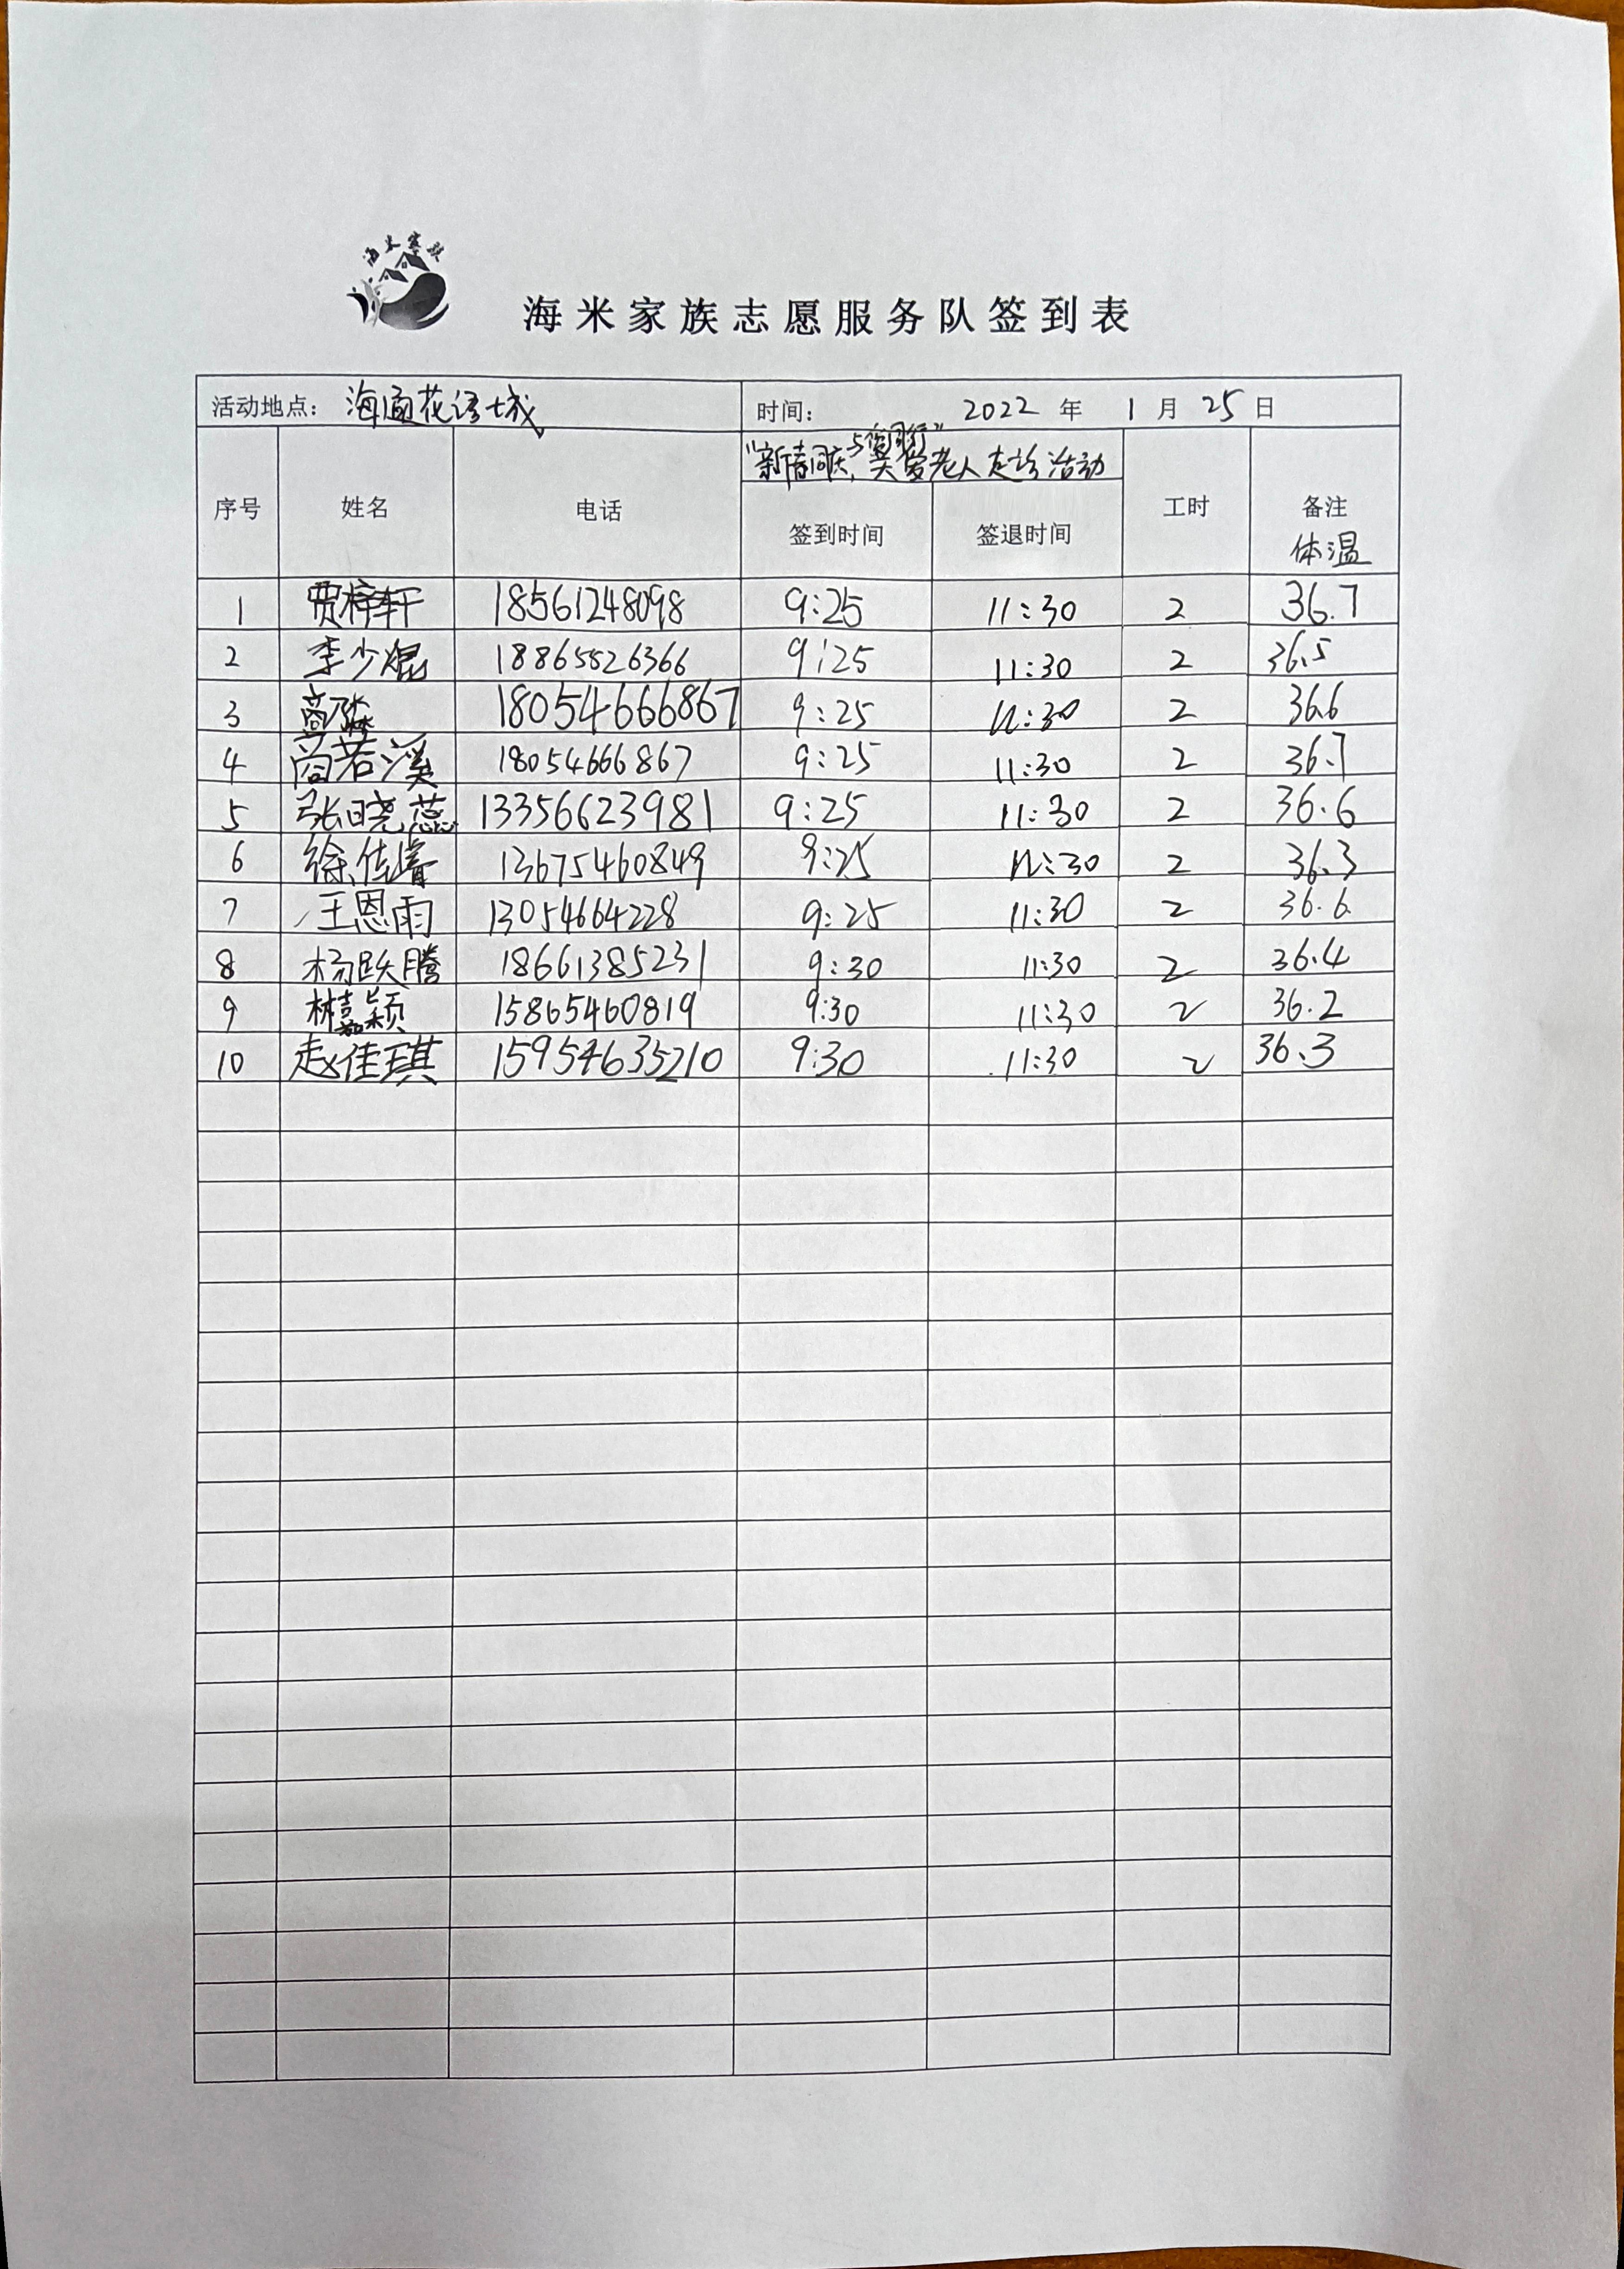 海米家族
海米家族志愿服务队签到表
活动地点: 海通花语城 时间: 2022 年 1 月 25 日
"新春同庆, 与爱同行" 关爱老人走访活动
序号 姓名 电话 签到时间 签退时间 工时 备注
体温
1 贾梓轩 18561248098 9:25 11:30 2 36.7
2 李少焜 18865526366 9:25 11:30 2 36.5
3 18054666867 9:25 11:30 2 36.6
4 尚若溪 18054666867 9:25 11:30 2 36.7
5 张晓蕊 13356623981 9:25 11:30 2 36.6
6 徐佳睿 13675460849 9:25 11:30 2 36.3
7 王恩雨 13054664228 9:25 11:30 2 36.6
8 杨跃腾 18661385231 9:30 11:30 2 36.4
9 颖 15865460819 9:30 11:30 2 36.2
10 赵佳琪 15954635210 9:30 11:30 2 36.3